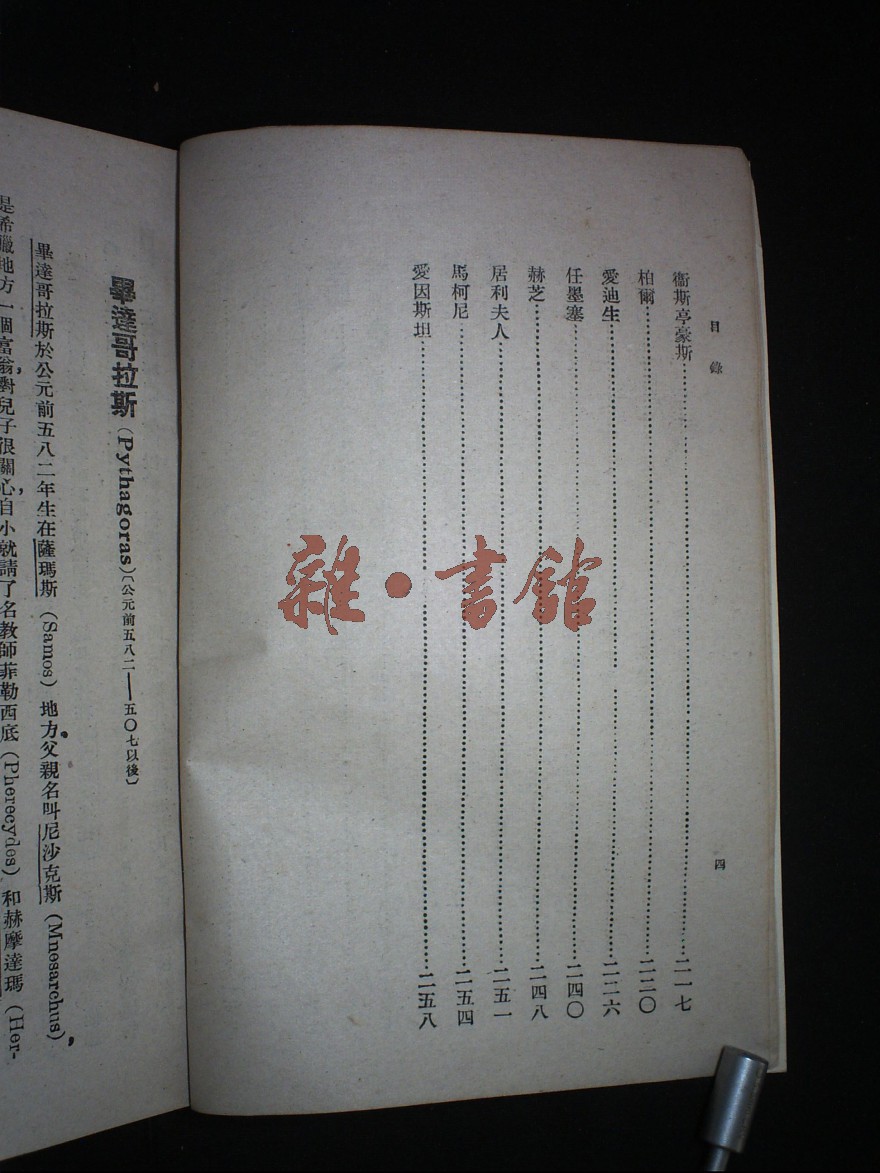 目錄
四
衞斯亭豪斯………二一七
柏爾………二二〇
愛迪生………二二六
任墨塞………二四〇
赫芝………二四八
居利夫人………二五一
馬柯尼………二五四
愛因斯坦………二五八
雜·書館
畢達哥拉斯(Pythagoras)〔公元前五八二——五〇七以後〕
畢達哥拉斯於公元前五八二年生在薩瑪斯(Samos)地方。父親名叫尼沙克斯(Mnesarchus),
是希臘地方一個富翁,對兒子很關心,自小就請了名教師菲勒西底(Pherecydes)和赫摩達瑪(Her-